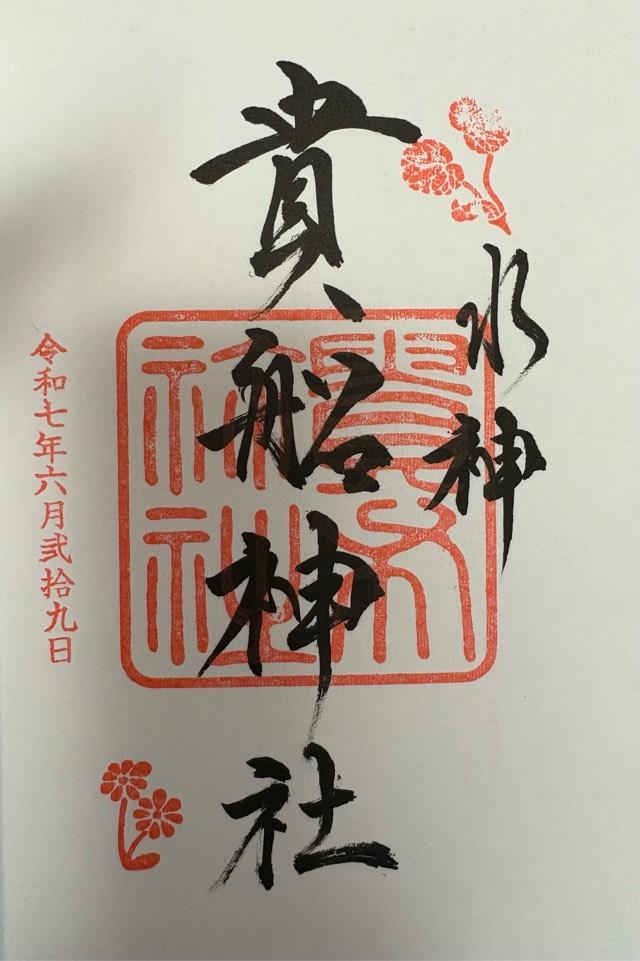 水神
貴船神社
令和七年六月弐拾九日